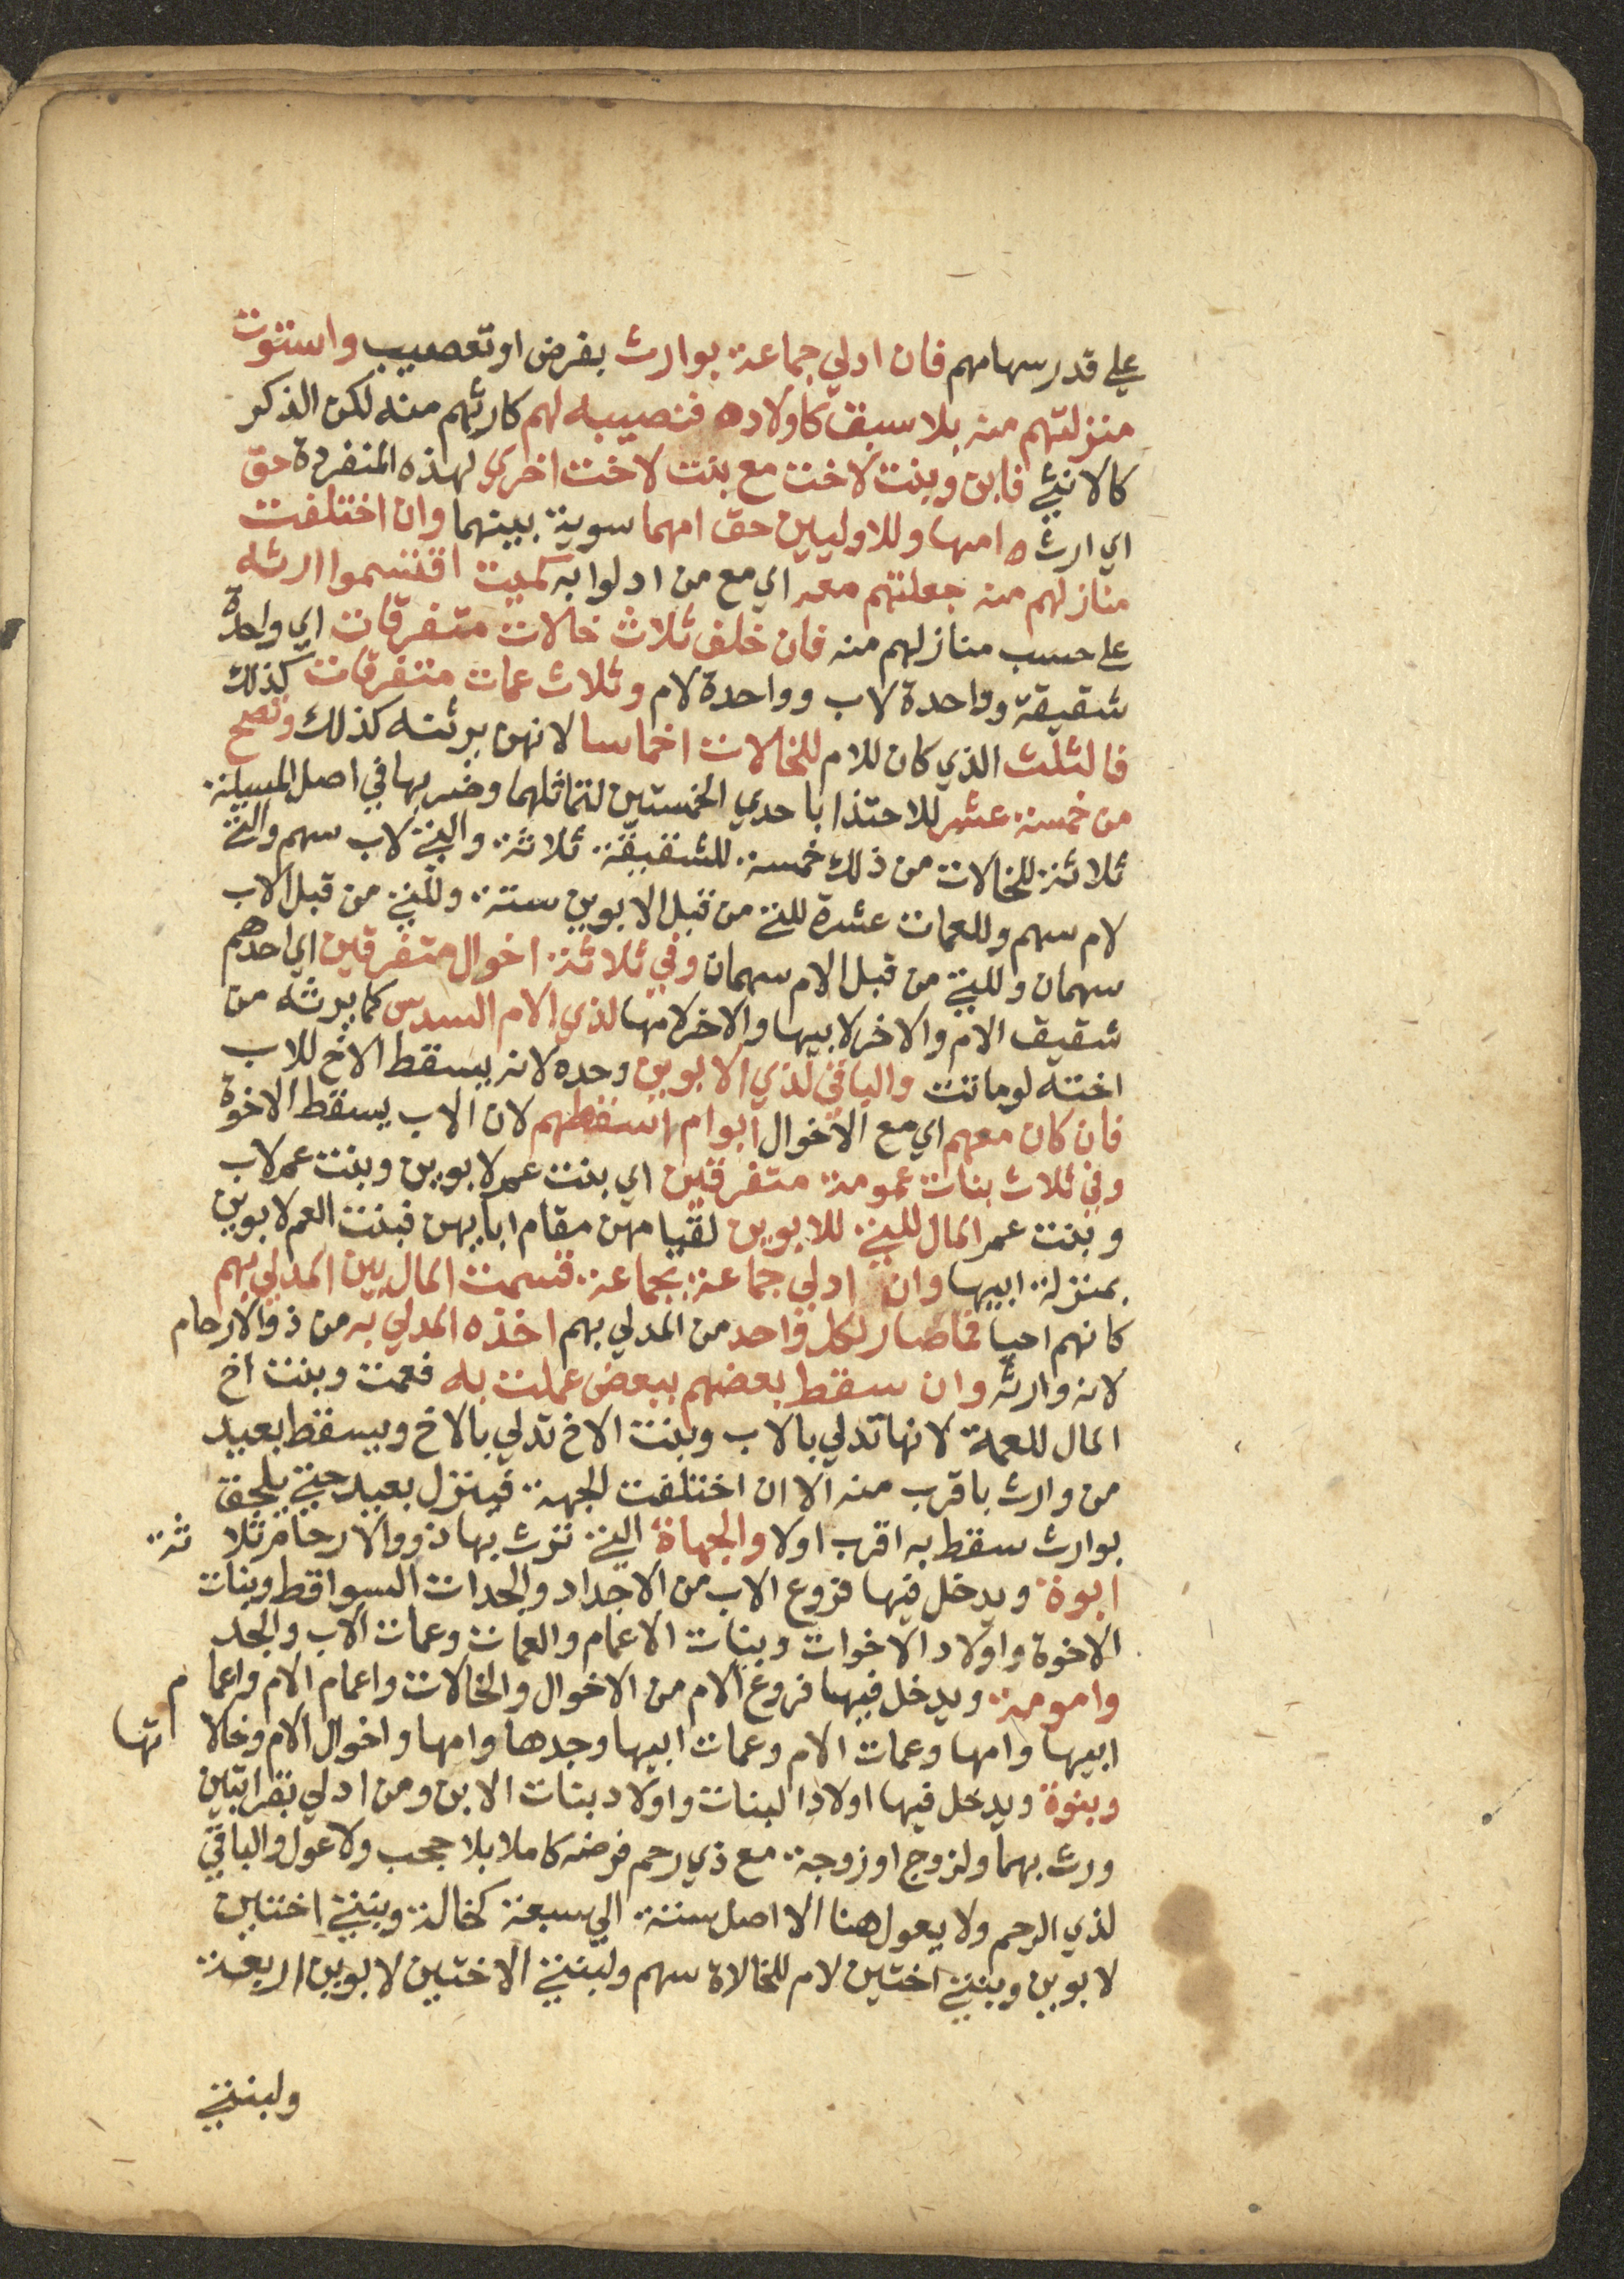 علي قدر سهامهم فان ادلي جماعة بوارث بفرض او تعصيب واستوت
منزلتهم منه بلا سبق كاولاده فنصيبه لهم كارثهم منه لكن الذكر
كالانثي فابن وبنت لاخت مع بنت لاخت اخري لهذه المنفردة حق
اي ارث امها وللاوليين حق امهما سوية بينهما وان اختلفت
منازلهم منه جعلتهم معه اي مع من ادلوا به كميت اقتسموا ارثه
علي حسب منازلهم منه فان خلف ثلاث خالات متفرقات اي واحدة
شقيقة وواحدة لاب وواحدة لام وثلاث عمات متفرقات كذلك
فالثلث الذي كان للام للخالات اخماسا لانهن يرثنه كذلك وتصح
من خمسة عشر للاحتذا باحدي الخمستين لتماثلهما وضربها في اصل المسيلة
ثلاثة للخالات من ذلك خمسة للشقيقة ثلاثة والتي لاب سهم والتي
لام سهم وللعمات عشرة للتي من قبل الابوين ستة وللتي من قبل الاب
سهمان وللتي من قبل الام سهمان وفي ثلاثة اخوال متفرقين اي احدهم
شقيق الام والاخر لابيها والاخر لامها لذي الام السدس كما يرثه من
اخته لو ماتت والباقي لذي الابوين وحده لانه يسقط الاخ للاب
فان كان معهم اي مع الاخوال ابوام اسقطهم لان الاب يسقط الاخوة
وفي ثلاث بنات عمومة متفرقين اي بنت عم لابوين وبنت عم لاب
وبنت عم المال للتي للابوين لقيامهن مقام ابايهن فبنت العم لابوين
بمنزلة ابيها وان ادلي جماعة بجماعة قسمت المال بين المدلي بهم
كانهم احيا فما صار لكل واحد من المدلي بهم اخذه المدلي به من ذو الارحام
لانه وارثه وان سقط بعضهم ببعض عملت به فعمت وبنت اخ
المال للعمة لانها تدلي بالاب وبنت الاخ تدلي بالاخ ويسقط بعيد
من وارث باقرب منه الا ان اختلفت الجهة فينزل بعيد حتي يلحق
بوارث سقط به اقرب اولا والجهاة التي ترث بها ذووا الارحام ثلاثة
ابوة ويدخل فيها فروع الاب من الاجداد والجدات السواقط وبنات
الاخوة واولاد الاخوات وبنات الاعمام والعمات وعمات الاب والجد
وامومة ويدخل فيها فروع الام من الاخوال والخالات واعمام الام واعمام
ابيها وامها وعمات الام وعمات ابيها وجدها وامها واخوال الام وخالاتها
وبنوة ويدخل فيها اولاد البنات واولاد بنات الابن ومن ادلي بقرابتين
ورث بهما ولزوج او زوجة مع ذي رحم فرضه كاملا بلا حجب ولا عول والباقي
لذي الرحم ولا يعول هنا الا اصل ستة الي سبعة كخالة وبنتي اختين
لابوين وبنتي اختين لام للخالاة سهم ولبنتي الاختين لابوين اربعة
ولبنتي